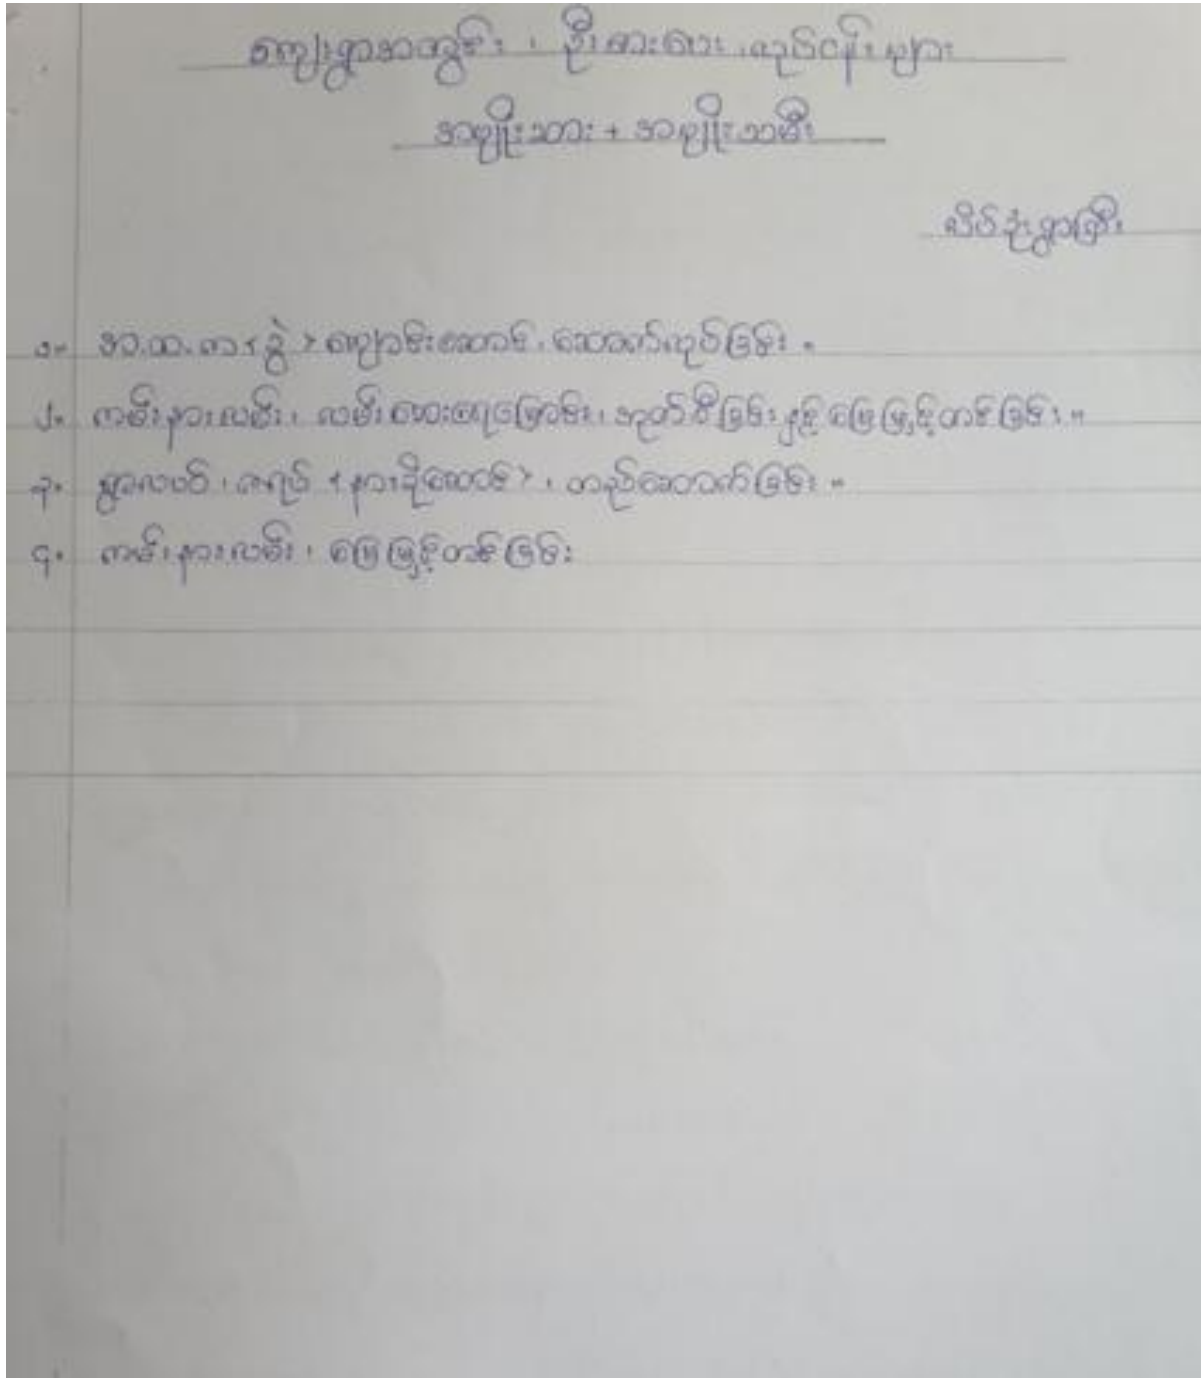 ကျေးရွာအတွင်း ၊ ဦးစားပေး လုပ်ငန်းများ
အမျိုးသား + အမျိုးသမီး
လိပ်အုံးရွာကြီး
၁။ အ.ထ.က < ခွဲ > ကျောင်းဆောင် ၊ ဆောက်လုပ်ခြင်း ။
၂။ ကမ်းနားလမ်း ၊ လမ်းဘေးရေမြောင်း ၊ အုတ်စီခြင်းနှင့် မြေမြှင့်တင်ခြင်း ။
၃။ ရွာလယ် ၊ ဇရပ် < နားခိုဆောင် > ၊ တည်ဆောက်ခြင်း ။
၄။ ကမ်းနားလမ်း ၊ မြေမြှင့်တင်ခြင်း